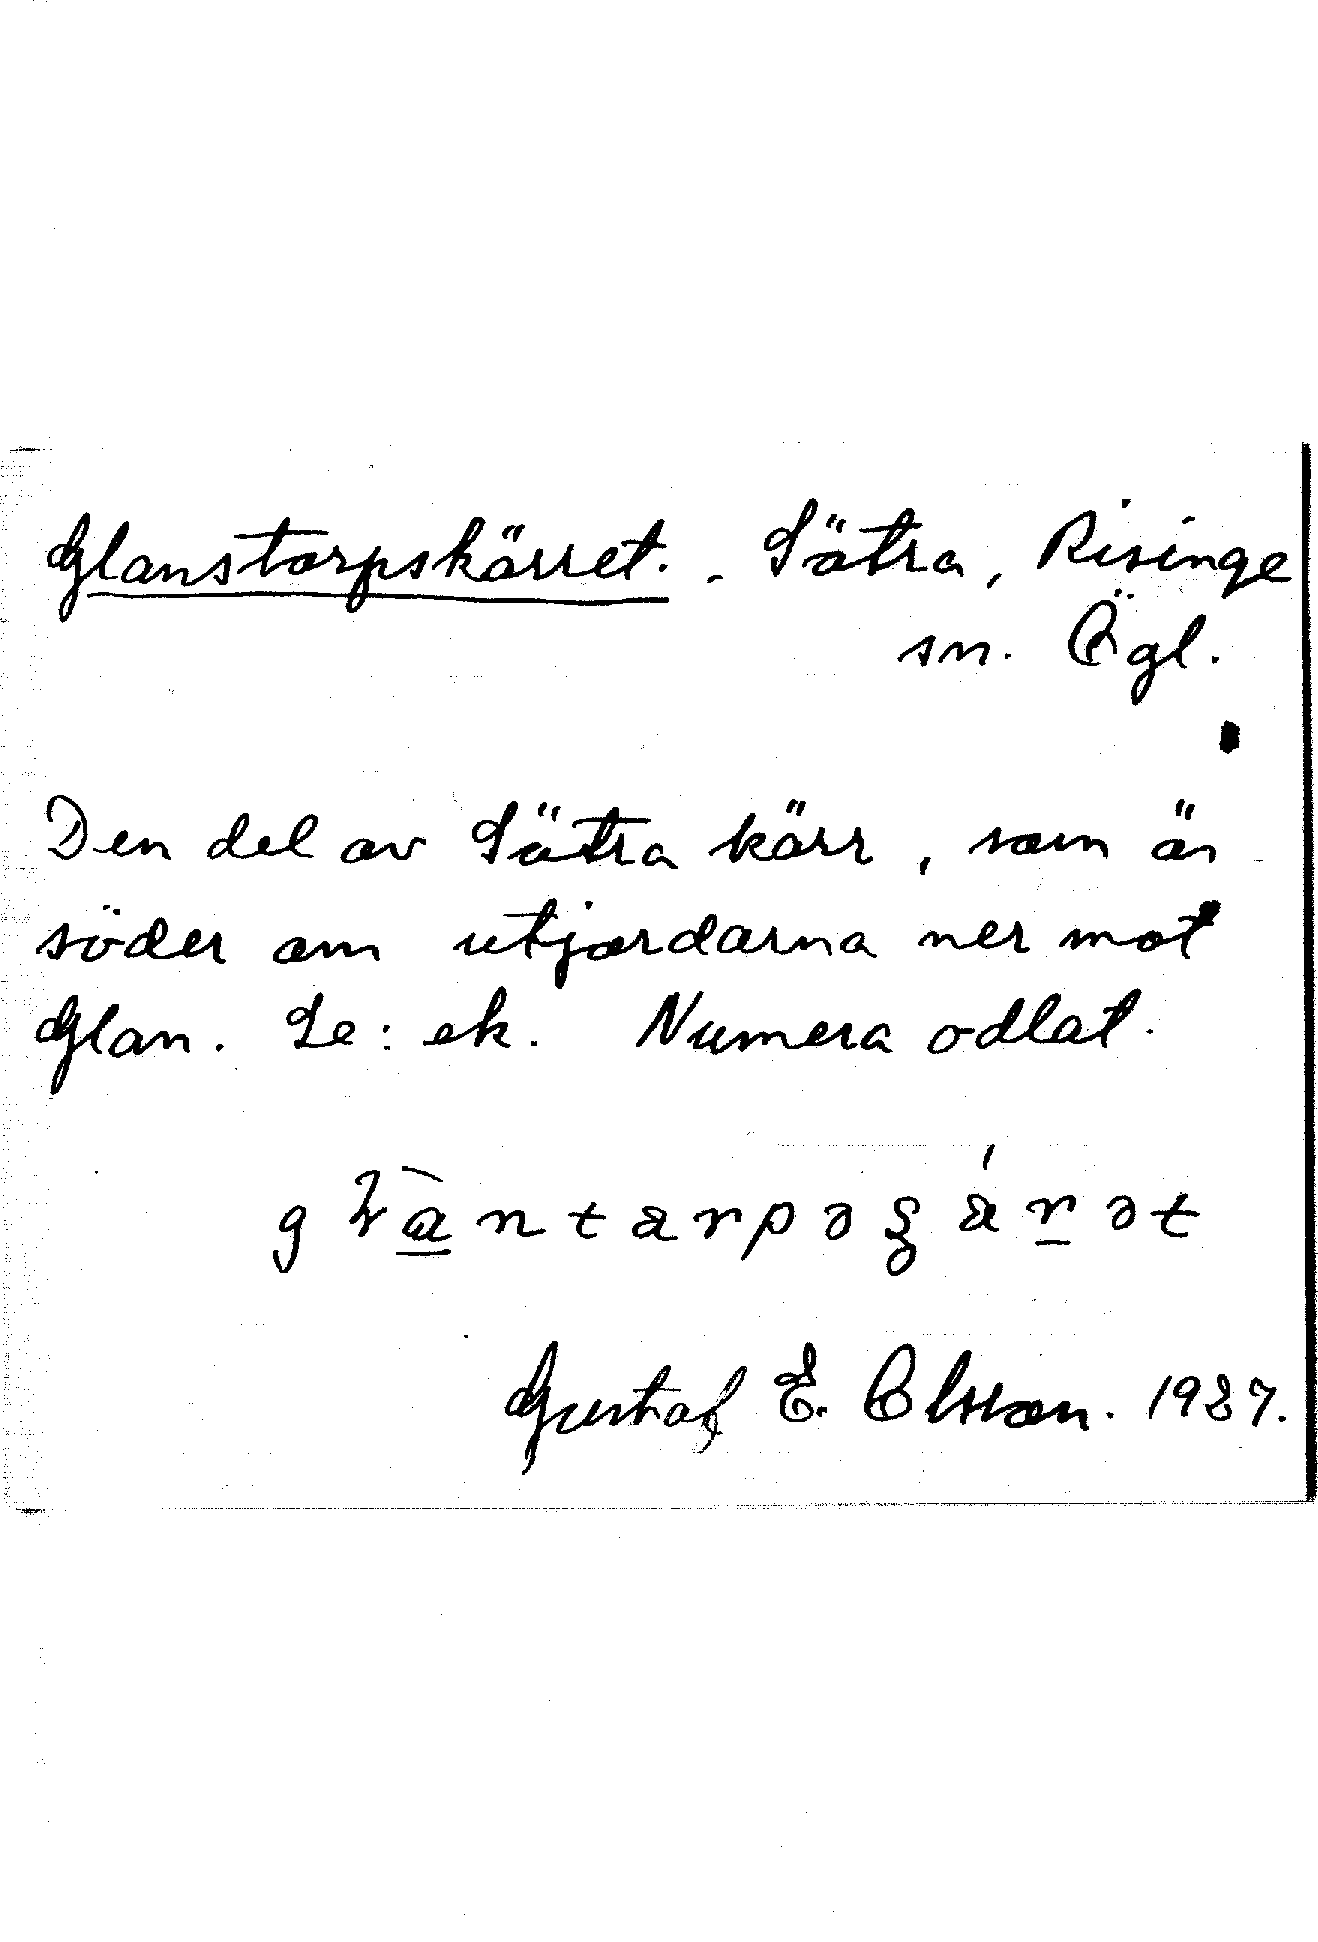 Glanstorpskärret. - Sätra, Risinge
sn. Ögl.
Den del av Sätra kärr, som är
söder om utjordarna ner mot
Glan. Se: ek. Numera odlat.
Gustaf E. Olsson. 1927.